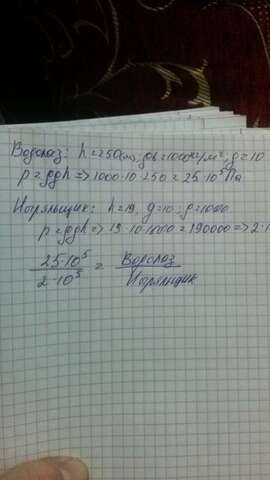 Водолаз: h=250м, ρв=1000кг/м³, g=10
p=ρgh=>1000·10·250=25·10⁵Па
Ныряльщик: h=19, g=10, ρ=1000
p=ρgh=>19·10·1000=190000=>2·1
25·10⁵ / 2·10⁵ = Водолаз / Ныряльщик